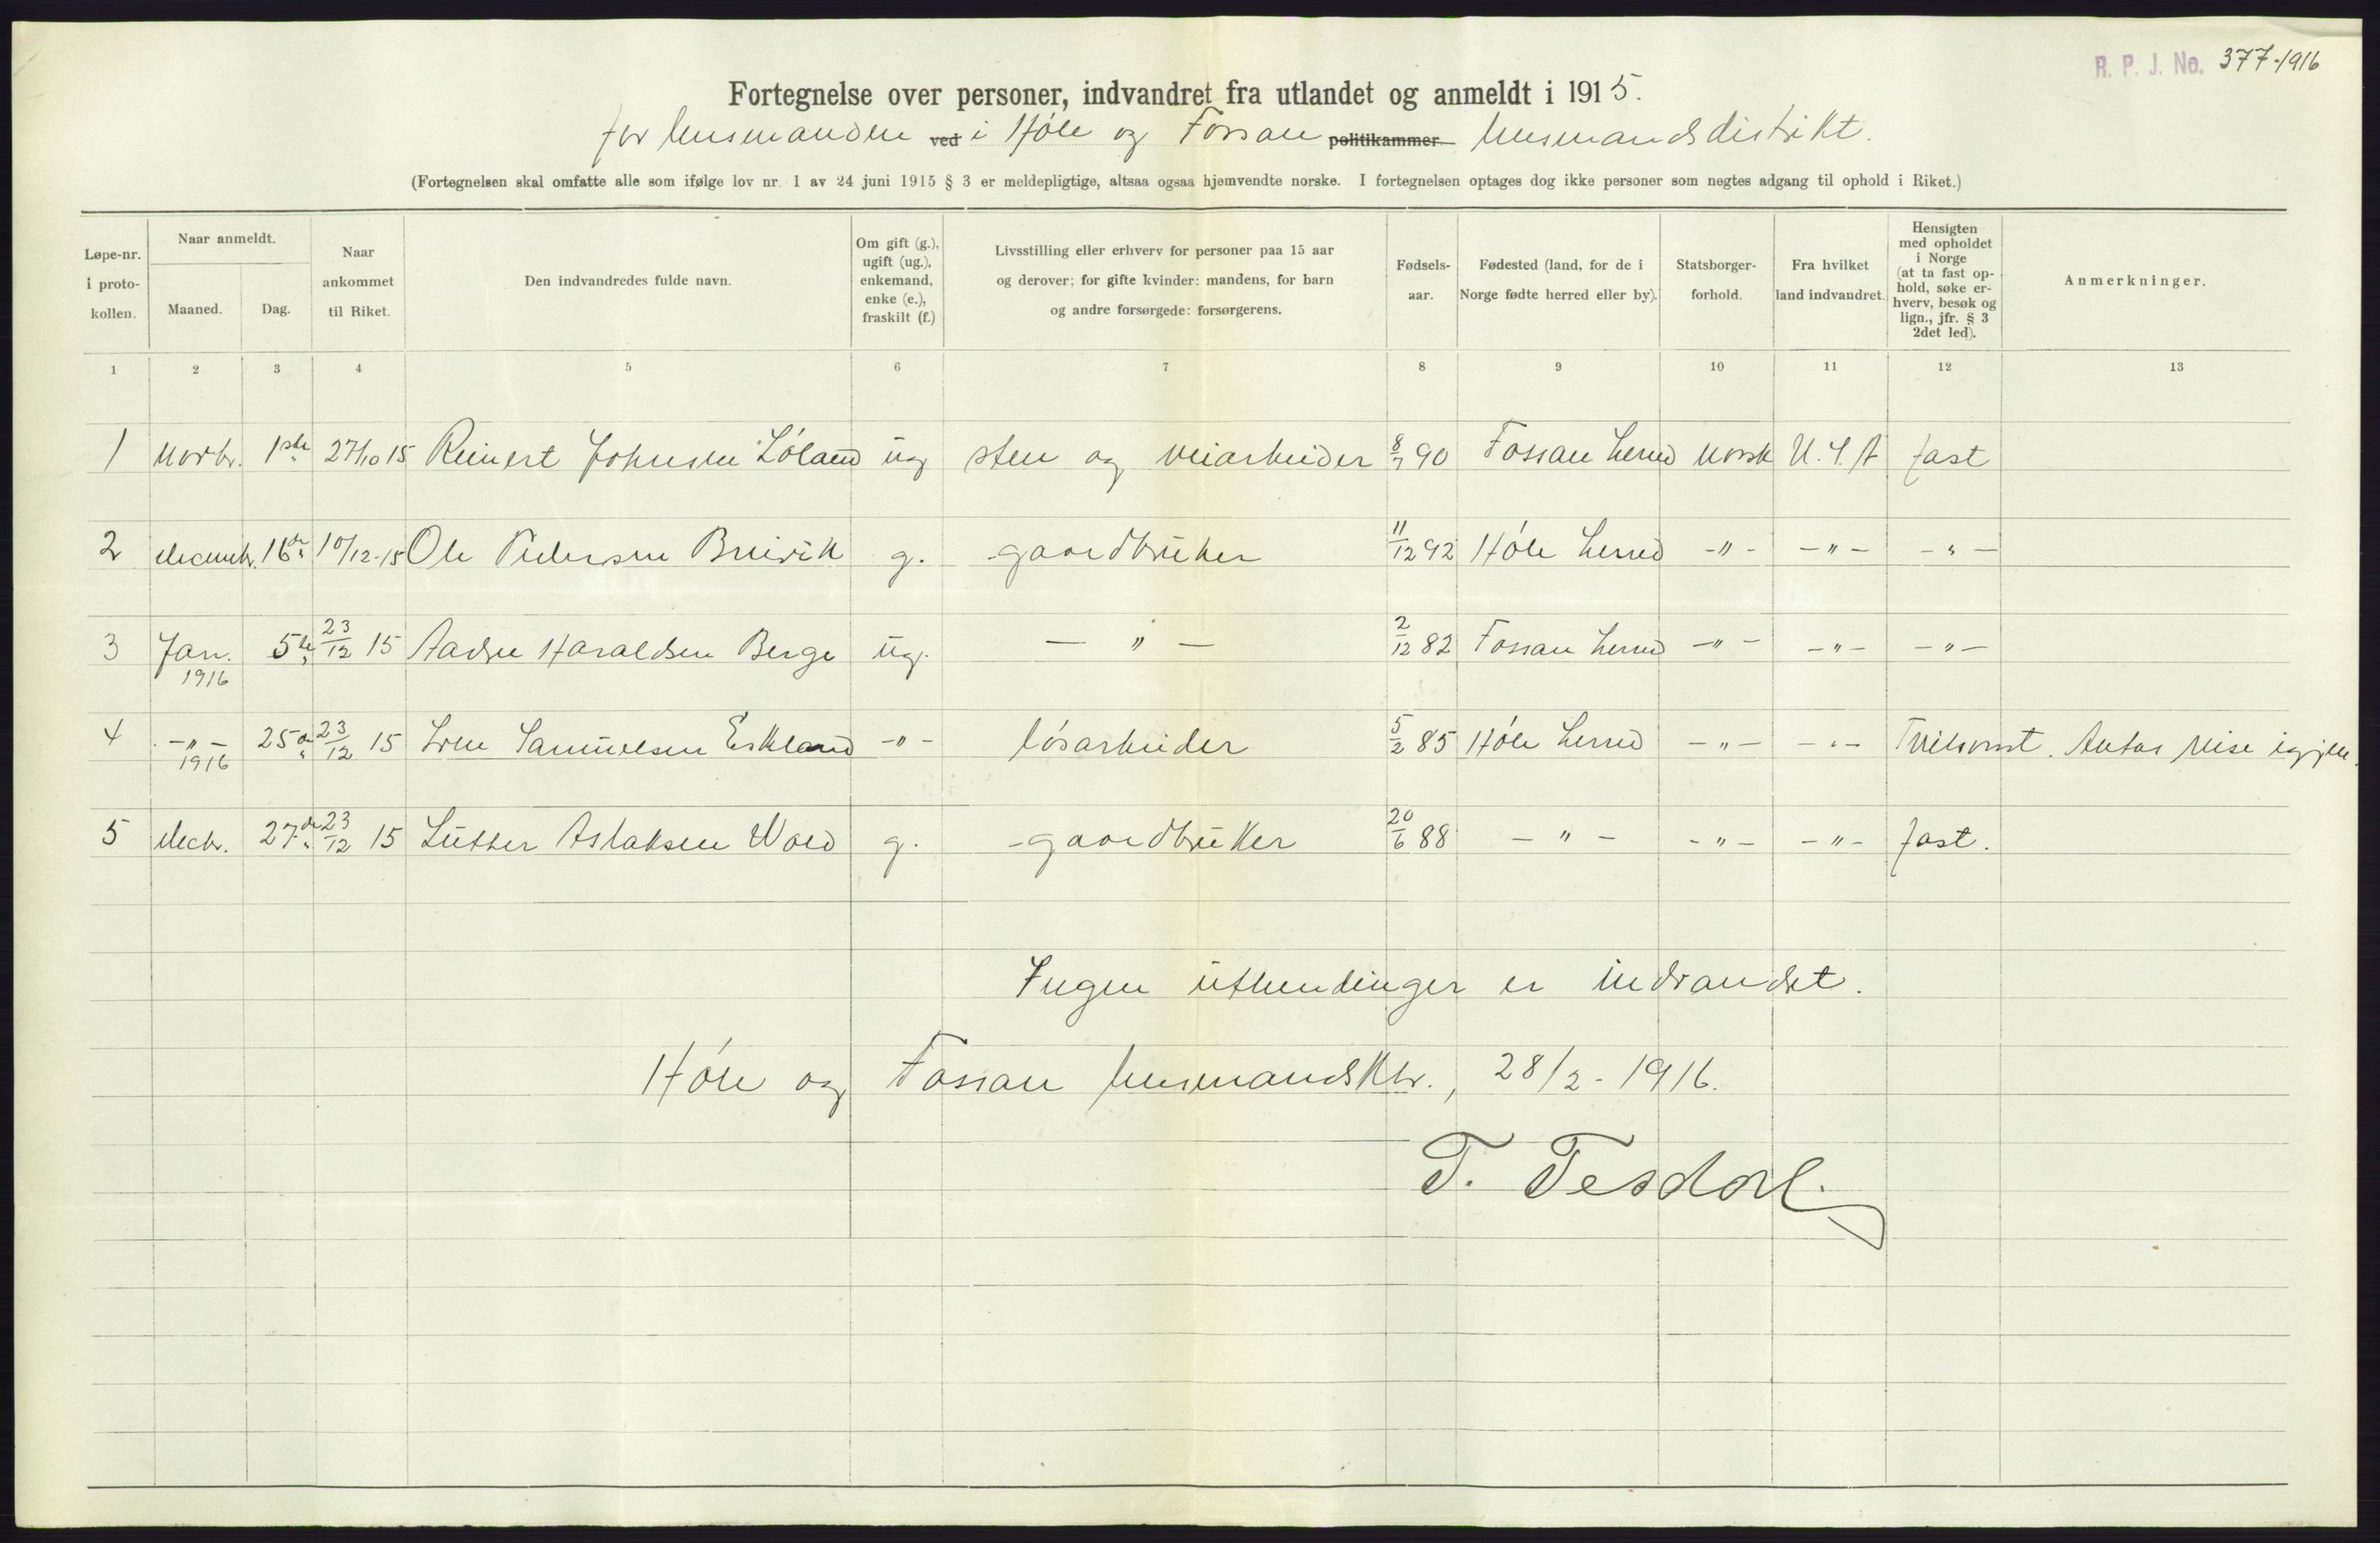 R. P. J. No. 377-1916
Fortegnelse over personer, indvandret fra utlandet og anmeldt i 1915.
for lensmanden ved i Høle og Fossan politikammer lensmandsdistrikt.
(Fortegnelsen skal omfatte alle som ifølge lov nr. 1 av 24 juni 1915 § 3 er meldepligtige, altsaa ogsaa hjemvendte norske. I fortegnelsen optages dog ikke personer som negtes adgang til ophold i Riket.)
Løpe-nr. i proto-kollen.
Naar anmeldt.
Maaned.
Dag.
Naar ankommet til Riket.
Den indvandredes fulde navn.
Om gift (g.), ugift (ug.), enkemand, enke (e.), fraskilt (f.)
Livsstilling eller erhverv for personer paa 15 aar og derover; for gifte kvinder: mandens, for barn og andre forsørgede: forsørgerens.
Fødsels-aar.
Fødested (land, for de i Norge fødte herred eller by).
Statsborger-forhold.
Fra hvilket land indvandret.
Hensigten med opholdet i Norge (at ta fast op-hold, søke er-hverv, besøk og lign., jfr. § 3 2det led).
Anmerkninger.
1 2 3 4 5 6 7 8 9 10 11 12 13
1 Novbr. 1ste 27/10 15 Reinert Johnsen Løland ug sten og veiarbeider 8/7 90 Fossan herred norsk U.S.A fast
2 decembr. 16de 10/12-15 Ole Pedersen Breivik g. gaardbruker 11/12 92 Høle herred -"- -"- -"-
3 Jan. 1916 5te 23/12 15 Aadne Haraldsen Berge ug. -"- 2/12 82 Fossan herred -"- -"- -"-
4 -"- 1916 25de 23/12 15 Sven Samuelsen Eskeland -"- løsarbeider 5/2 85 Høle herred -"- -"- Tvilsomt. Antas reise igjen.
5 decbr. 27de 23/12 15 Luther Aslaksen Wold g. gaardbruker 20/6 88 -"- -"- -"- fast.
Ingen utlendinger er indvandret.
Høle og Fossan lensmandsktr., 28/2-1916.
T. Tesdal.